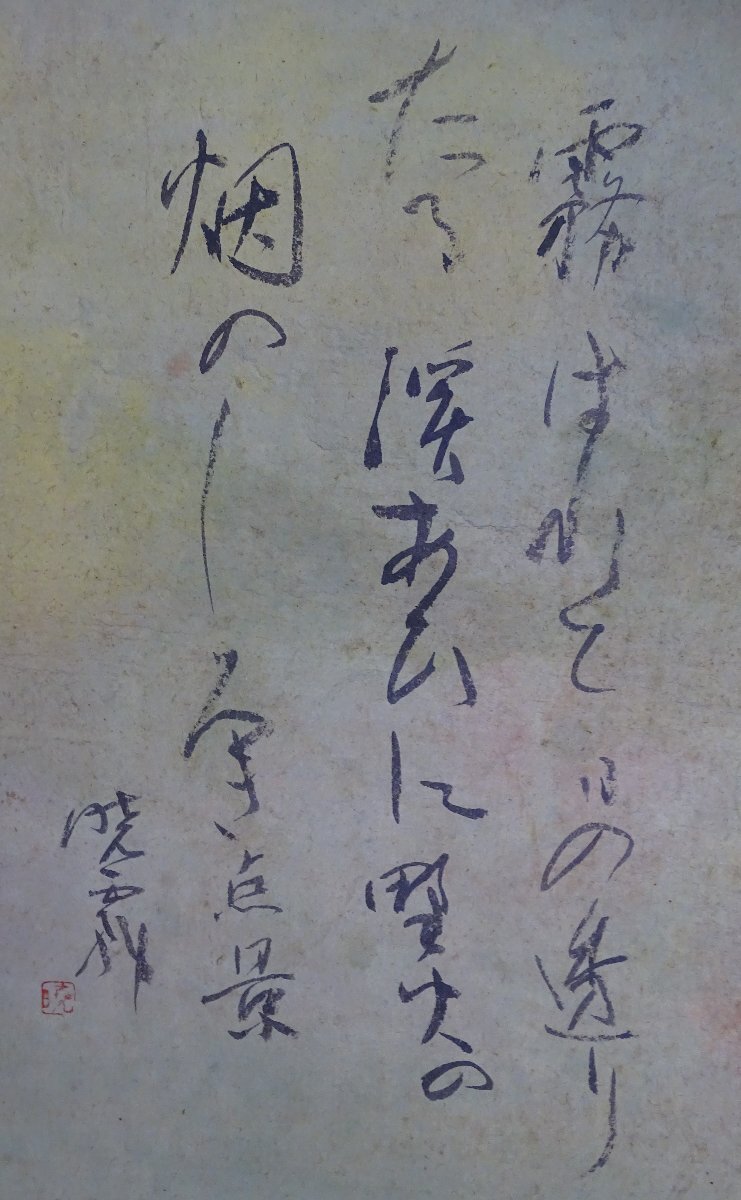 霧はれて日の透り
たる渓あひに野火の
烟のし点景
暁
暁